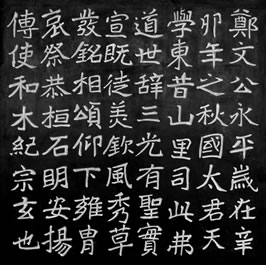 鄭文公永平歲在辛
卯年之秋國太君天
學東昔山里司此弗
道世辞三光有聖實
宣既徒美欽風秀草
發銘相頌仰下雍胄
哀祭恭桓石明安揚
傳使和木紀宗玄也